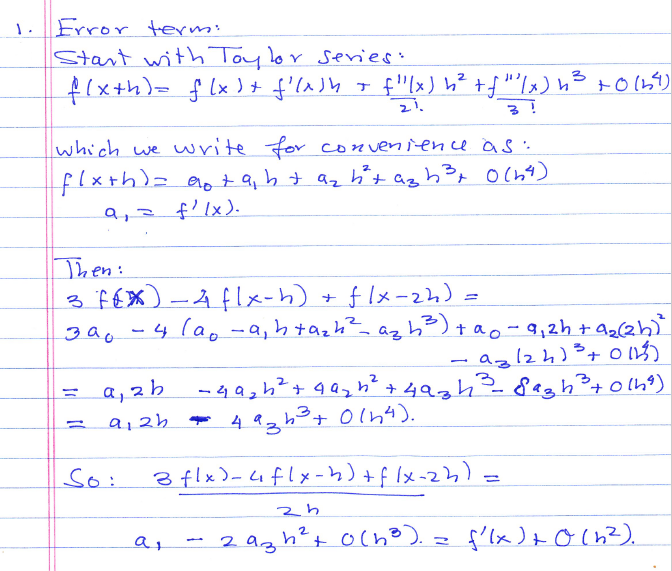 1. Error term:
Start with Taylor series:
f(x+h)= f(x)+ f'(x)h + f''(x)/2! h² + f'''(x)/3! h³ + O(h⁴)
which we write for convenience as:
f(x+h)= a₀ + a₁h + a₂h² + a₃h³ + O(h⁴)
a₁ = f'(x).
Then:
3 f(x) - 4 f(x-h) + f(x-2h) =
3a₀ - 4 (a₀ - a₁h + a₂h² - a₃h³) + a₀ - a₁2h + a₂(2h)²
- a₃(2h)³ + O(h⁴)
= a₁2h - 4a₂h² + 4a₂h² + 4a₃h³ - 8a₃h³ + O(h⁴)
= a₁2h - 4a₃h³ + O(h⁴).
So: 3f(x)-4f(x-h)+f(x-2h) =
2h
a₁ - 2a₃h² + O(h³). = f'(x) + O(h²).